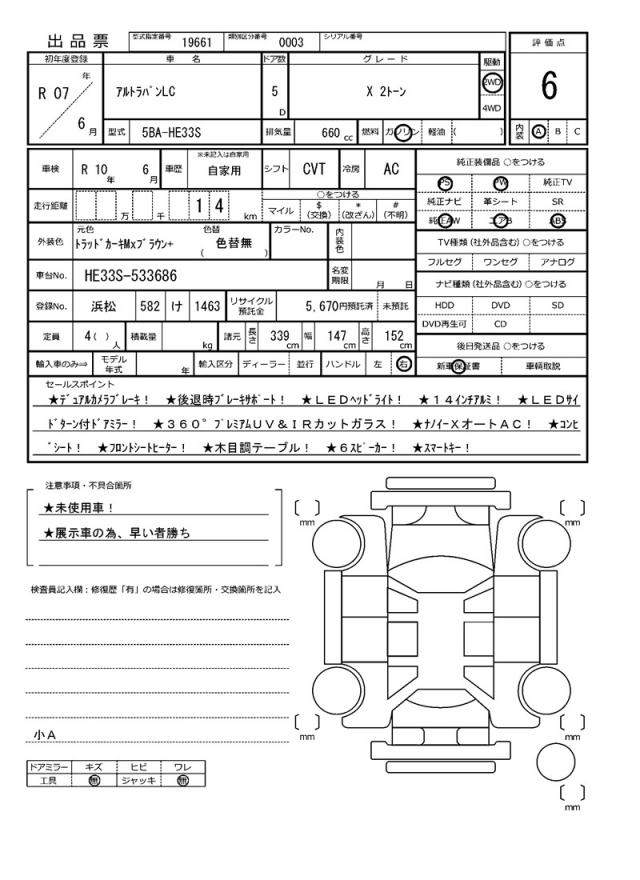 出品票 型式指定番号 19661 類別区分番号 0003 シリアル番号
評価点
初年度登録 車名 ドア数 グレード 駆動
R 07 年 6 月
ｱﾙﾄﾗﾊﾟﾝLC 5 D X 2トーン 2WD 4WD
6
型式 5BA-HE33S 排気量 660 cc 燃料 ガソリン 軽油 ( ) 内装 A B C
車検 R 10 年 6 月 車歴 ※未記入は自家用 自家用 シフト CVT 冷房 AC
純正装備品 ○をつける
PS PW 純正TV
純正ナビ 革シート SR
純正AW エアB ABS
走行距離 万 千 1 4 km
○をつける
マイル $(交換) *(改ざん) #(不明)
外装色 元色 ﾄﾗｯﾄﾞｶｰｷMxﾌﾞﾗｳﾝ+ 色替 ( 色替無 ) カラーNo. 内装色
TV種類(社外品含む)○をつける
フルセグ ワンセグ アナログ
車台No. HE33S-533686 名変期限 月 日
ナビ種類(社外品含む)○をつける
HDD DVD SD
DVD再生可 CD
登録No. 浜松 582 け 1463 リサイクル預託金 5,670円預託済 未預託
定員 4( ) 人 積載量 kg 諸元 長さ 339 cm 幅 147 cm 高さ 152 cm
後日発送品 ○をつける
新車保証書 車輌取説
輸入車のみ⇒ モデル年式 年 輸入区分 ディーラー 並行 ハンドル 左 右
セールスポイント
★ﾃﾞｭｱﾙｶﾒﾗﾌﾞﾚｰｷ！ ★後退時ﾌﾞﾚｰｷｻﾎﾟｰﾄ！ ★ＬＥＤﾍｯﾄﾞﾗｲﾄ！ ★１４ｲﾝﾁｱﾙﾐ！ ★ＬＥＤｻｲ
ﾄﾞﾀｰﾝ付ﾄﾞｱﾐﾗｰ！ ★３６０°ﾌﾟﾚﾐｱﾑＵＶ＆ＩＲカットガラス！ ★ﾅﾉｲｰＸオートＡＣ！ ★ｺﾝﾋ
ﾞｼｰﾄ！ ★ﾌﾛﾝﾄｼｰﾄﾋｰﾀｰ！ ★木目調テーブル！ ★６ｽﾋﾟｰｶｰ！ ★ｽﾏｰﾄｷｰ！
注意事項・不具合箇所
★未使用車！
★展示車の為、早い者勝ち
検査員記入欄：修復歴「有」の場合は修復箇所・交換箇所を記入
小Ａ
ドアミラー キズ ヒビ ワレ
工具 無 ジャッキ 無
[ ] mm
[ ] mm
[ ] mm
[ ] mm
[ ] mm